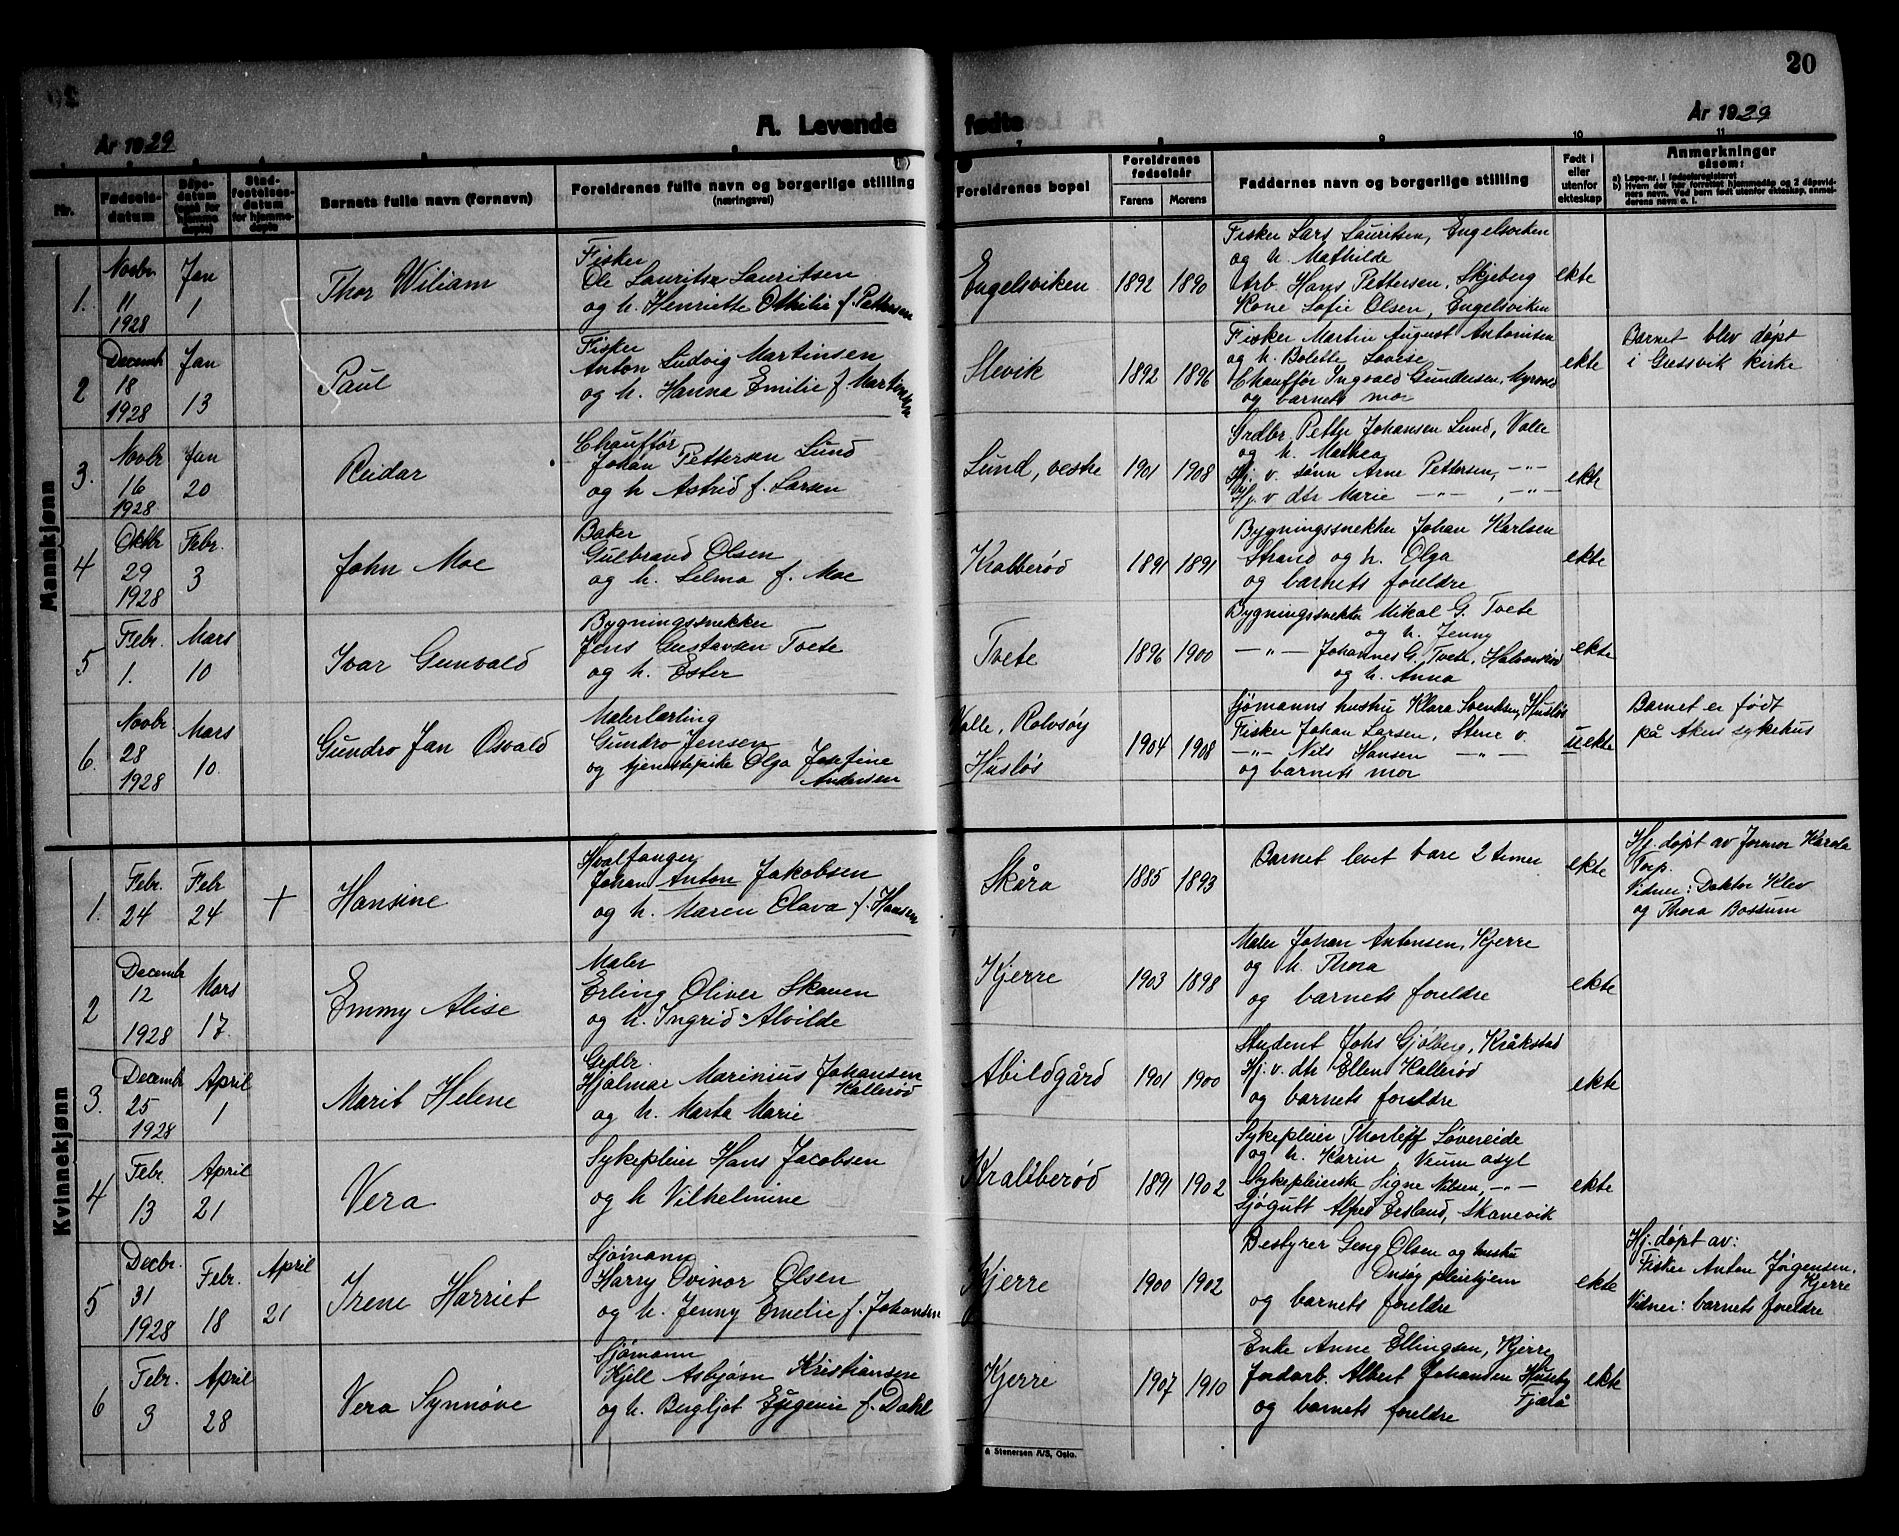 20
År 1929
A. Levende fødte
År 1929
Nr.
Fødsels-
datum
Dåps-
datum
Stad-
festelses-
datum
for hjemme-
døpte
Barnets fulle navn (fornavn)
Foreldrenes fulle navn og borgerlige stilling
(næringsvei)
Foreldrenes bopel
Foreldrenes
fødselsår
Farens
Morens
Faddernes navn og borgerlige stilling
Født i
eller
utenfor
ekteskap
Anmerkninger
såsom:
a) Løpe-nr. i fødselsregisteret
b) Hvem der har forrettet hjemmedåp og 2 dåpsvid-
ners navn. Ved barn født utenfor ekteskap, anmel-
derens navn o. l.
Mannkjønn
1.
Novbr.
11
1928
Jan
1
Thor Wiliam
Fisker
Ole Lauritz Lauritsen
og h. Henriette Othilie f. Pettersen
Engelsviken
1892
1890
Fisker Lars Lauritsen, Engelsviken
og h. Mathilde
Arb. Hans Pettersen, Skjeberg
Kone Sofie Olsen, Engelsviken
ekte
2
Decembr
18
1928
Jan
13
Paul
Fisker
Anton Ludvig Martinsen
og h. Hanna Emilie f. Martinsen
Slevik
1892
1896
Fisker Martin August Antonisen
og h. Bolette Lovise
Chauffør Ingvald Gundersen,
og barnets mor
ekte
Barnet blev døpt
i Gressvik kirke
3.
Novbr
16
1928
Jan
20
Reidar
Chauffør
Johan Pettersen Lund
og h Astrid f. Larsen
Lund, vestre
1901
1908
Grdbr. Petter Johansen Lund, Valle
og h. Mathea
Hj. v. sønn Arne Pettersen, —"—
Hj. v dtr Marie —"— , —"—
ekte
4
Oktbr
29
1928
Febr.
3
John Moe
Baker
Gulbrand Olsen
og h. Selma f. Moe
Kralberød
1891
1891
Bygningssnekker Johan Karlsen
Strand og h. Olga
og barnets foreldre
ekte
5
Febr.
1.
Mars
10
Ivar Gunvald
Bygningssnekker
Jens Gustavsen Tvete
og h. Ester
Tvete
1896
1900
Bygningssnekker Mikal G. Tvete
og h. Jenny
—"— Johannes G. Tvete, Halvorsrød
og h. Anna
ekte
6.
Novbr
28
1928
Mars
10.
Gundro Jan Osvald
Malerlærling
Gundro Jensen
og tjenestepike Olga Josefine
Andersen
Valle, Rolvsøy
Husløs
1904
1908
Sjømanns hustru Klara Svendsen, Husløs
Fisker Johan Larsen, Stene v.
—"— Nils Hansen —"—
og barnets mor
uekte
Barnet er født
på Aker sykehus
Kvinnekjønn
1.
Febr.
24
Febr
24
+
Hansine
Hvalfanger
Johan Anton Jakobsen
og h. Maren Olava f. Hansen
Skåra
1885
1893
Barnet levet bare 2 timer
ekte
Hj. døpt av Jormor Karole
Torp.
Vidner: Doktor Klev
og Thora Bossum
2
Decembr
12
1928
Mars
17.
Emmy Alise
Maler
Erling Oliver Skauen
og h. Ingrid Alvilde
Kjerre
1903
1898
Maler Johan Antonsen, Kjerre
og h. Thora
og barnets foreldre
ekte
3.
Decembr
25
1928
April
1
Marit Helene
Grdbr.
Hjalmar Marinius Johansen
Kallerød
og h. Marta Marie
Abildgård
1901
1900
Student Johs Gjølberg, Kråkstad
Hj. v. dtr Ellen Kallerød
og barnets foreldre
ekte
4
Febr.
13
April
21
Vera
Sykepleier Hans Jacobsen
og h Vilhelmine
Kralberød
1891
1902
Sykepleier Thorleif Løvereide
og h. Karin, Veum asyl
Sykepleierske Signe Nilsen, —"—
Sjøgutt Alfred Eesland, Skånevik
ekte
5
Decbr.
31
1928
Febr.
18
April
21
Irene Harriet
Sjømann
Harry Ovinor Olsen
og h. Jenny Emelie f. Johansen
Kjerre
1900
1902
Bestyrer Georg Olsen og hustru
Onsøy pleiehjem
og barnets foreldre
ekte
Hj. døpt av:
Fisker Anton Jørgensen,
Kjerre
Vidner: barnets foreldre
6
Febr.
3
April
28
Vera Synnøve
Sjømann
Kjell Asbjørn Kristiansen
og h. Bergljot Eugenie f. Dahl
Kjerre
1907
1910
Enke Anne Ellingsen, Kjerre
Jordarb. Albert Johansen Huseby
Fjærå
og barnets foreldre
ekte
& Stenersen A/S, Oslo.